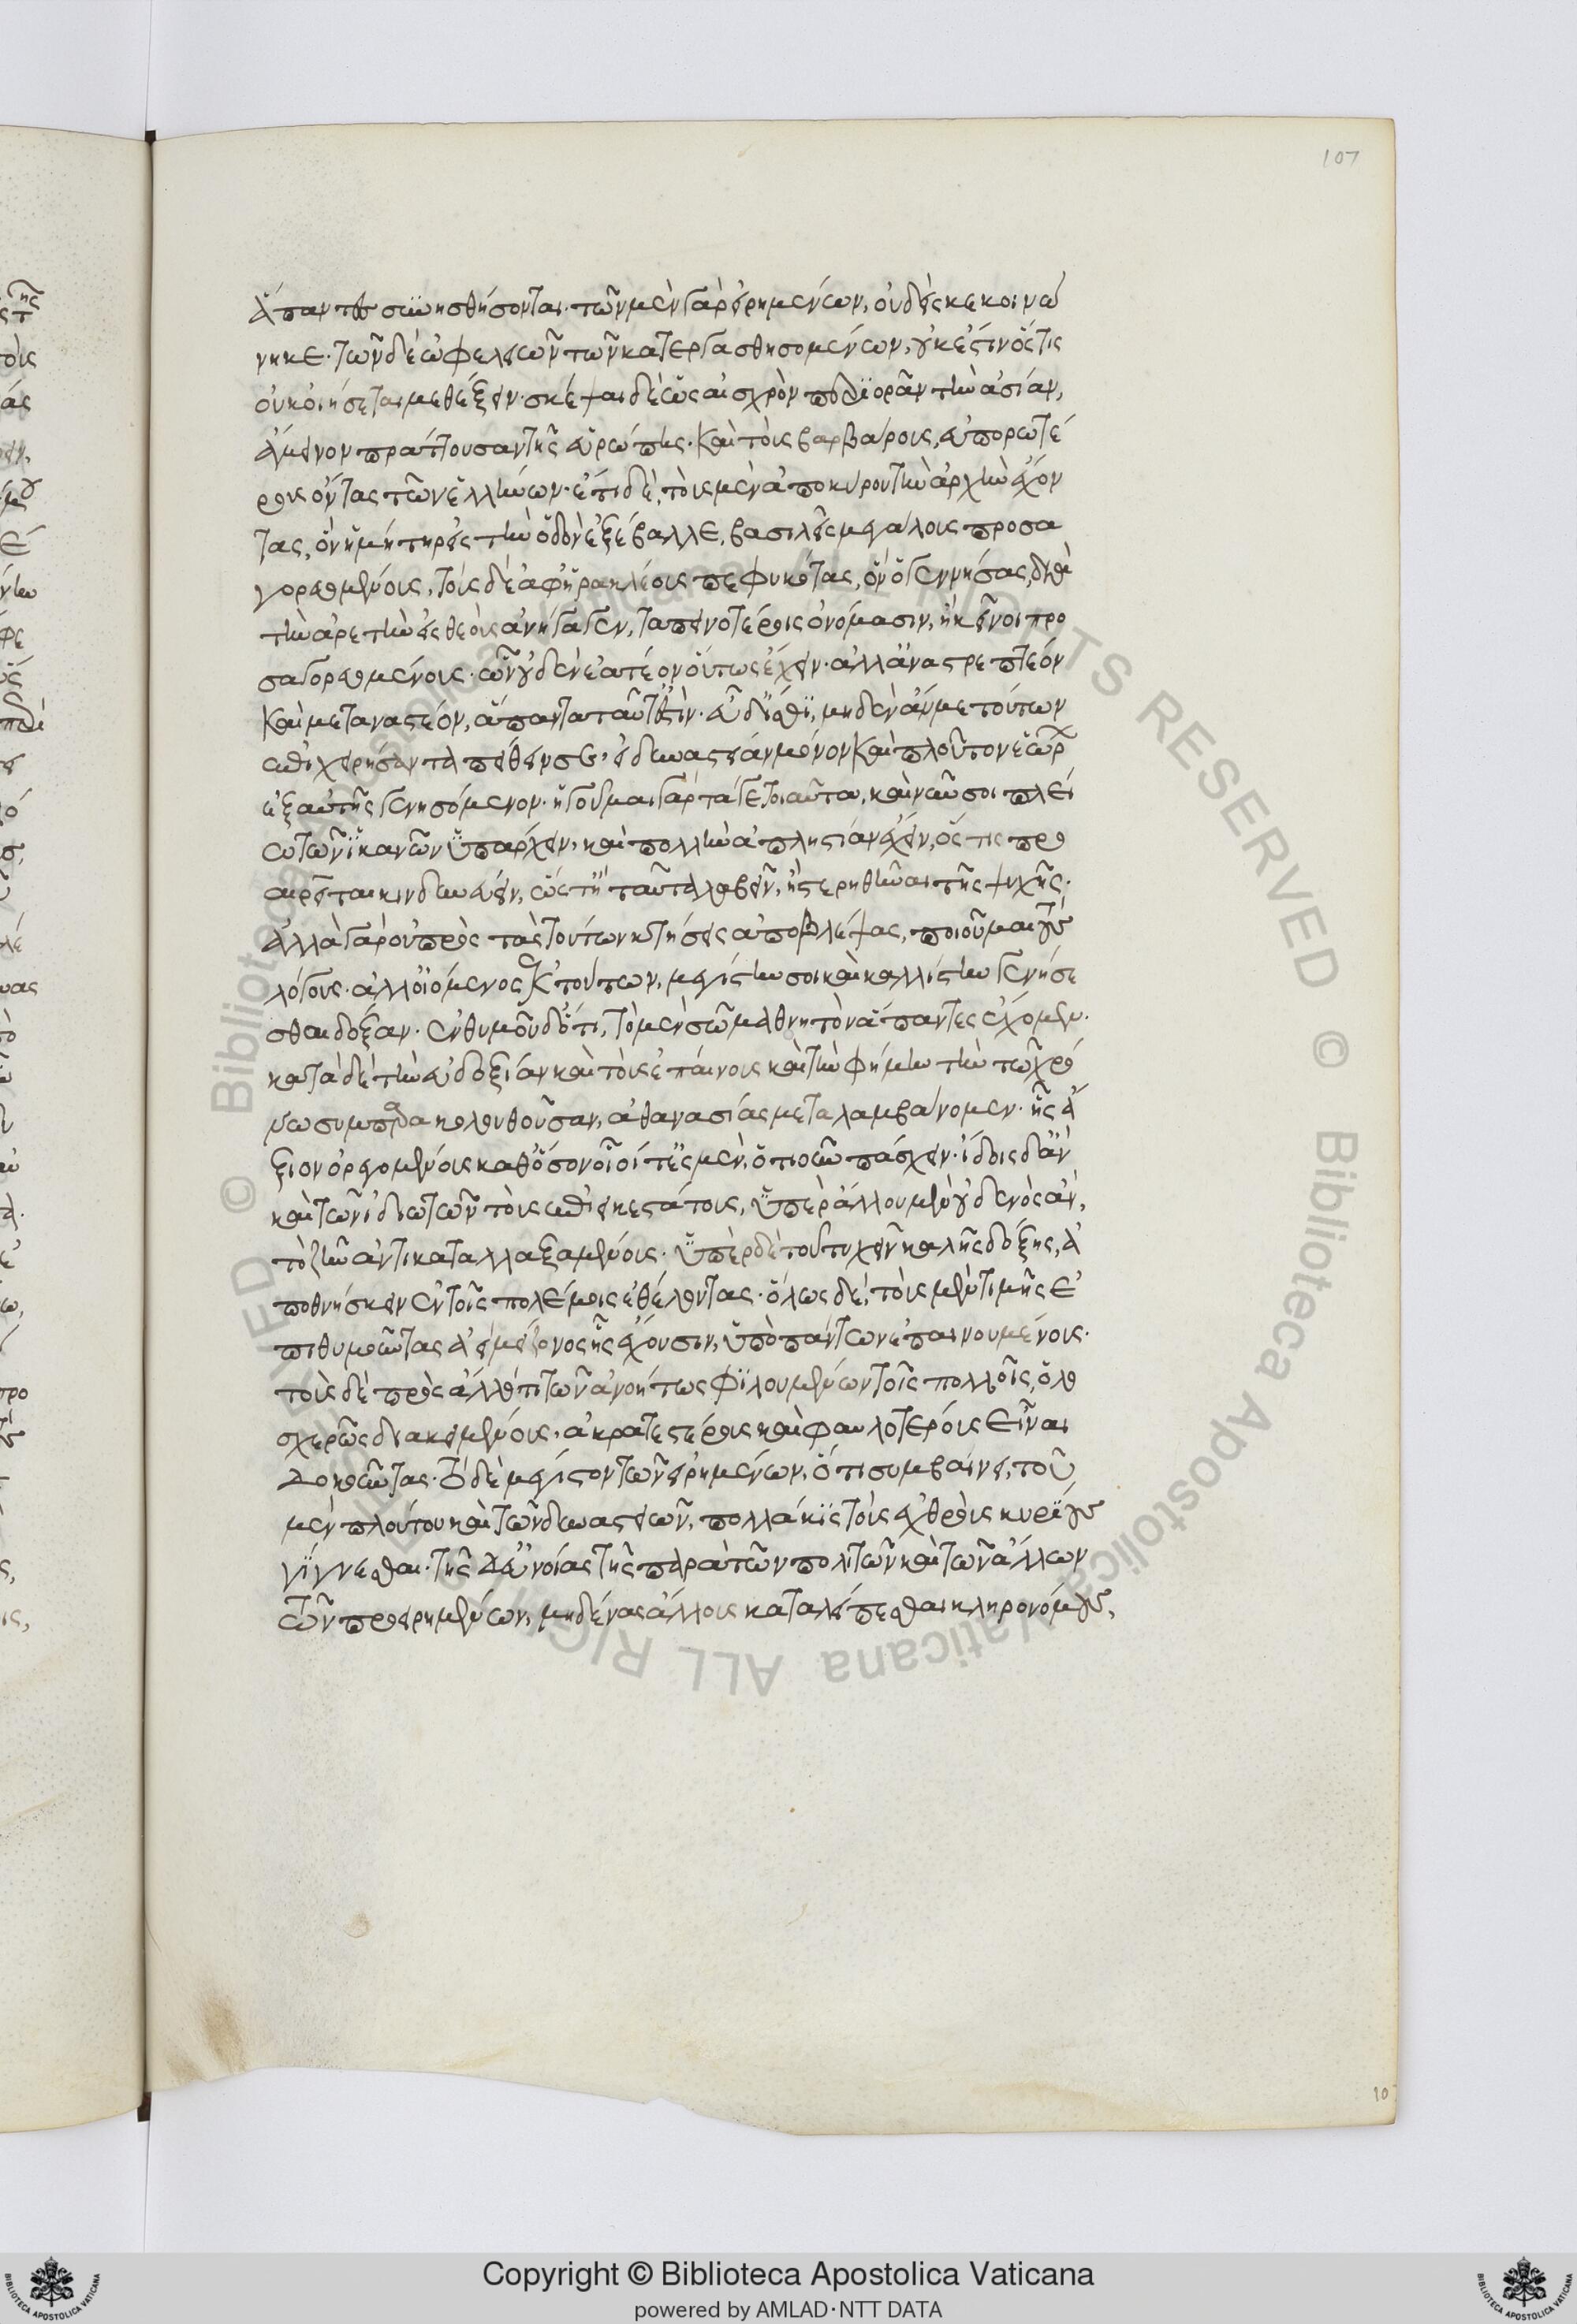 ἅπαντες συνησθήσονται· τῶν μὲν γὰρ εἰρημένων, οὐδεὶς κεκοινω
νηκε· τῶν δὲ ὠφελειῶν τῶν κατεργασθησομένων, οὐκ ἔστιν ὅστις
οὐκ οἰήσεται μεθέξειν· σκέψαι δὲ ὡς αἰσχρὸν περϊορᾶν τὴν ἀσίαν,
ἄμεινον πράττουσαν τῆς εὐρώπης· καὶ τοὺς βαρβάρους, εὐπορωτέ
ρους ὄντας τῶν ἑλλήνων· ἔτι δὲ, τοὺς μὲν ἀπο κύρου τὴν ἀρχὴν ἔχον
τας, ὃν ἡ μήτηρ εἰς τὴν ὁδὸν ἐξέβαλλε, βασιλεῖς μεγάλους προσα
γορευομένους, τοὺς δὲ ἀφ' ἡρακλέους πεφυκότας, ὃν ὁ γεννήσας, διὰ
τὴν ἀρετὴν εἰς θεοὺς ἀνήγαγεν, ταπεινοτέροις ὀνόμασιν, ἢ κεῖνοι προ
σαγορευομένους· ὧν οὐδὲν ἐατέον οὕτως ἔχειν· ἀλλ' ἀναστρεπτέον
καὶ μεταναστέον, ἅπαντα ταῦτ' ἐστὶν· εὖ δ' ἴσθϊ, μηδὲν ἄν με τούτων
ἐπιχειρήσαντα πείθειν σε, εἰ δυναστείαν μόνον καὶ πλοῦτον ἑώρων
ἐξ αὐτῆς γενησόμενον· ἡγοῦμαι γὰρ τά γε τοιαῦτα, καὶ νῦν σοι πλεί
ω τῶν ἱκανῶν ὑπάρχειν, καὶ πολλὴν ἀπληστίαν ἔχειν, ὅς τις προ
αιρεῖται κινδυνεύειν, ὥστ' ἢ ταῦτα λαβεῖν, ἢ στερηθῆναι τῆς ψυχῆς·
ἀλλὰ γὰρ οὐ πρὸς τὰς τούτων κτήσεις ἀποβλέψας, ποιοῦμαι τοὺς
λόγους· ἀλλ' οἰόμενος ἐκ τούτων, μεγίστην σοι καὶ καλλίστην γενήσε
σθαι δόξαν· ἐνθυμοῦ δ' ὅτι, τὸ μὲν σῶμα θνητὸν ἅπαντες ἔχομεν·
κατὰ δὲ τὴν εὐδοξίαν καὶ τοὺς ἐπαίνους καὶ τὴν φήμην τὴν τῶ χρό
νω συμπαρακολουθοῦσαν, ἀθανασίας μεταλαμβάνομεν· ἧς ἄ
ξιον ὀρεγομένους καθ' ὅσον οἷοί τ' ἐσμὲν, ὁτιοῦν πάσχειν· ἴδοις δ' ἂν
καὶ τῶν ἰδιωτῶν τοὺς ἐπιεικεστάτους, ὑπὲρ ἄλλου μὲν οὐδενὸς ἂν,
τὸ ζῆν ἀντικαταλλαξαμένους· ὑπὲρ δὲ τοῦ τυχεῖν καλῆς δόξης, ἀ
ποθνήσκειν ἐν τοῖς πολέμοις ἐθέλοντας· ὅλως δὲ, τοὺς μὲν τιμῆς ἐ
πιθυμοῦντας ἀεὶ μείζονος ἧς ἔχουσιν, ὑπὸ πάντων ἐπαινουμένους·
τοὺς δὲ πρὸς ἄλλό τι τῶν ἀνοήτως φϊλουμένων τοῖς πολλοῖς, ὀλο
σχερῶς διακειμένους, ἀκρατεστέρους καὶ φαυλοτέρους εἶναι
δοκοῦντας· τὸ δὲ μέγιστον τῶν εἰρημένων, ὅτι συμβαίνει, τοῦ
μὲν πλούτου καὶ τῶν δυναστειῶν, πολλάκϊς τοὺς ἐχθροὺς κυρίους
γίγνεσθαι· τῆς δ' εὐνοίας τῆς παρὰ τῶν πολιτῶν καὶ τῶν ἄλλων
τῶν προειρημένων, μηδένας ἄλλους καταλείπεσθαι κληρονόμους,
107
Copyright © Biblioteca Apostolica Vaticana
powered by AMLAD·NTT DATA